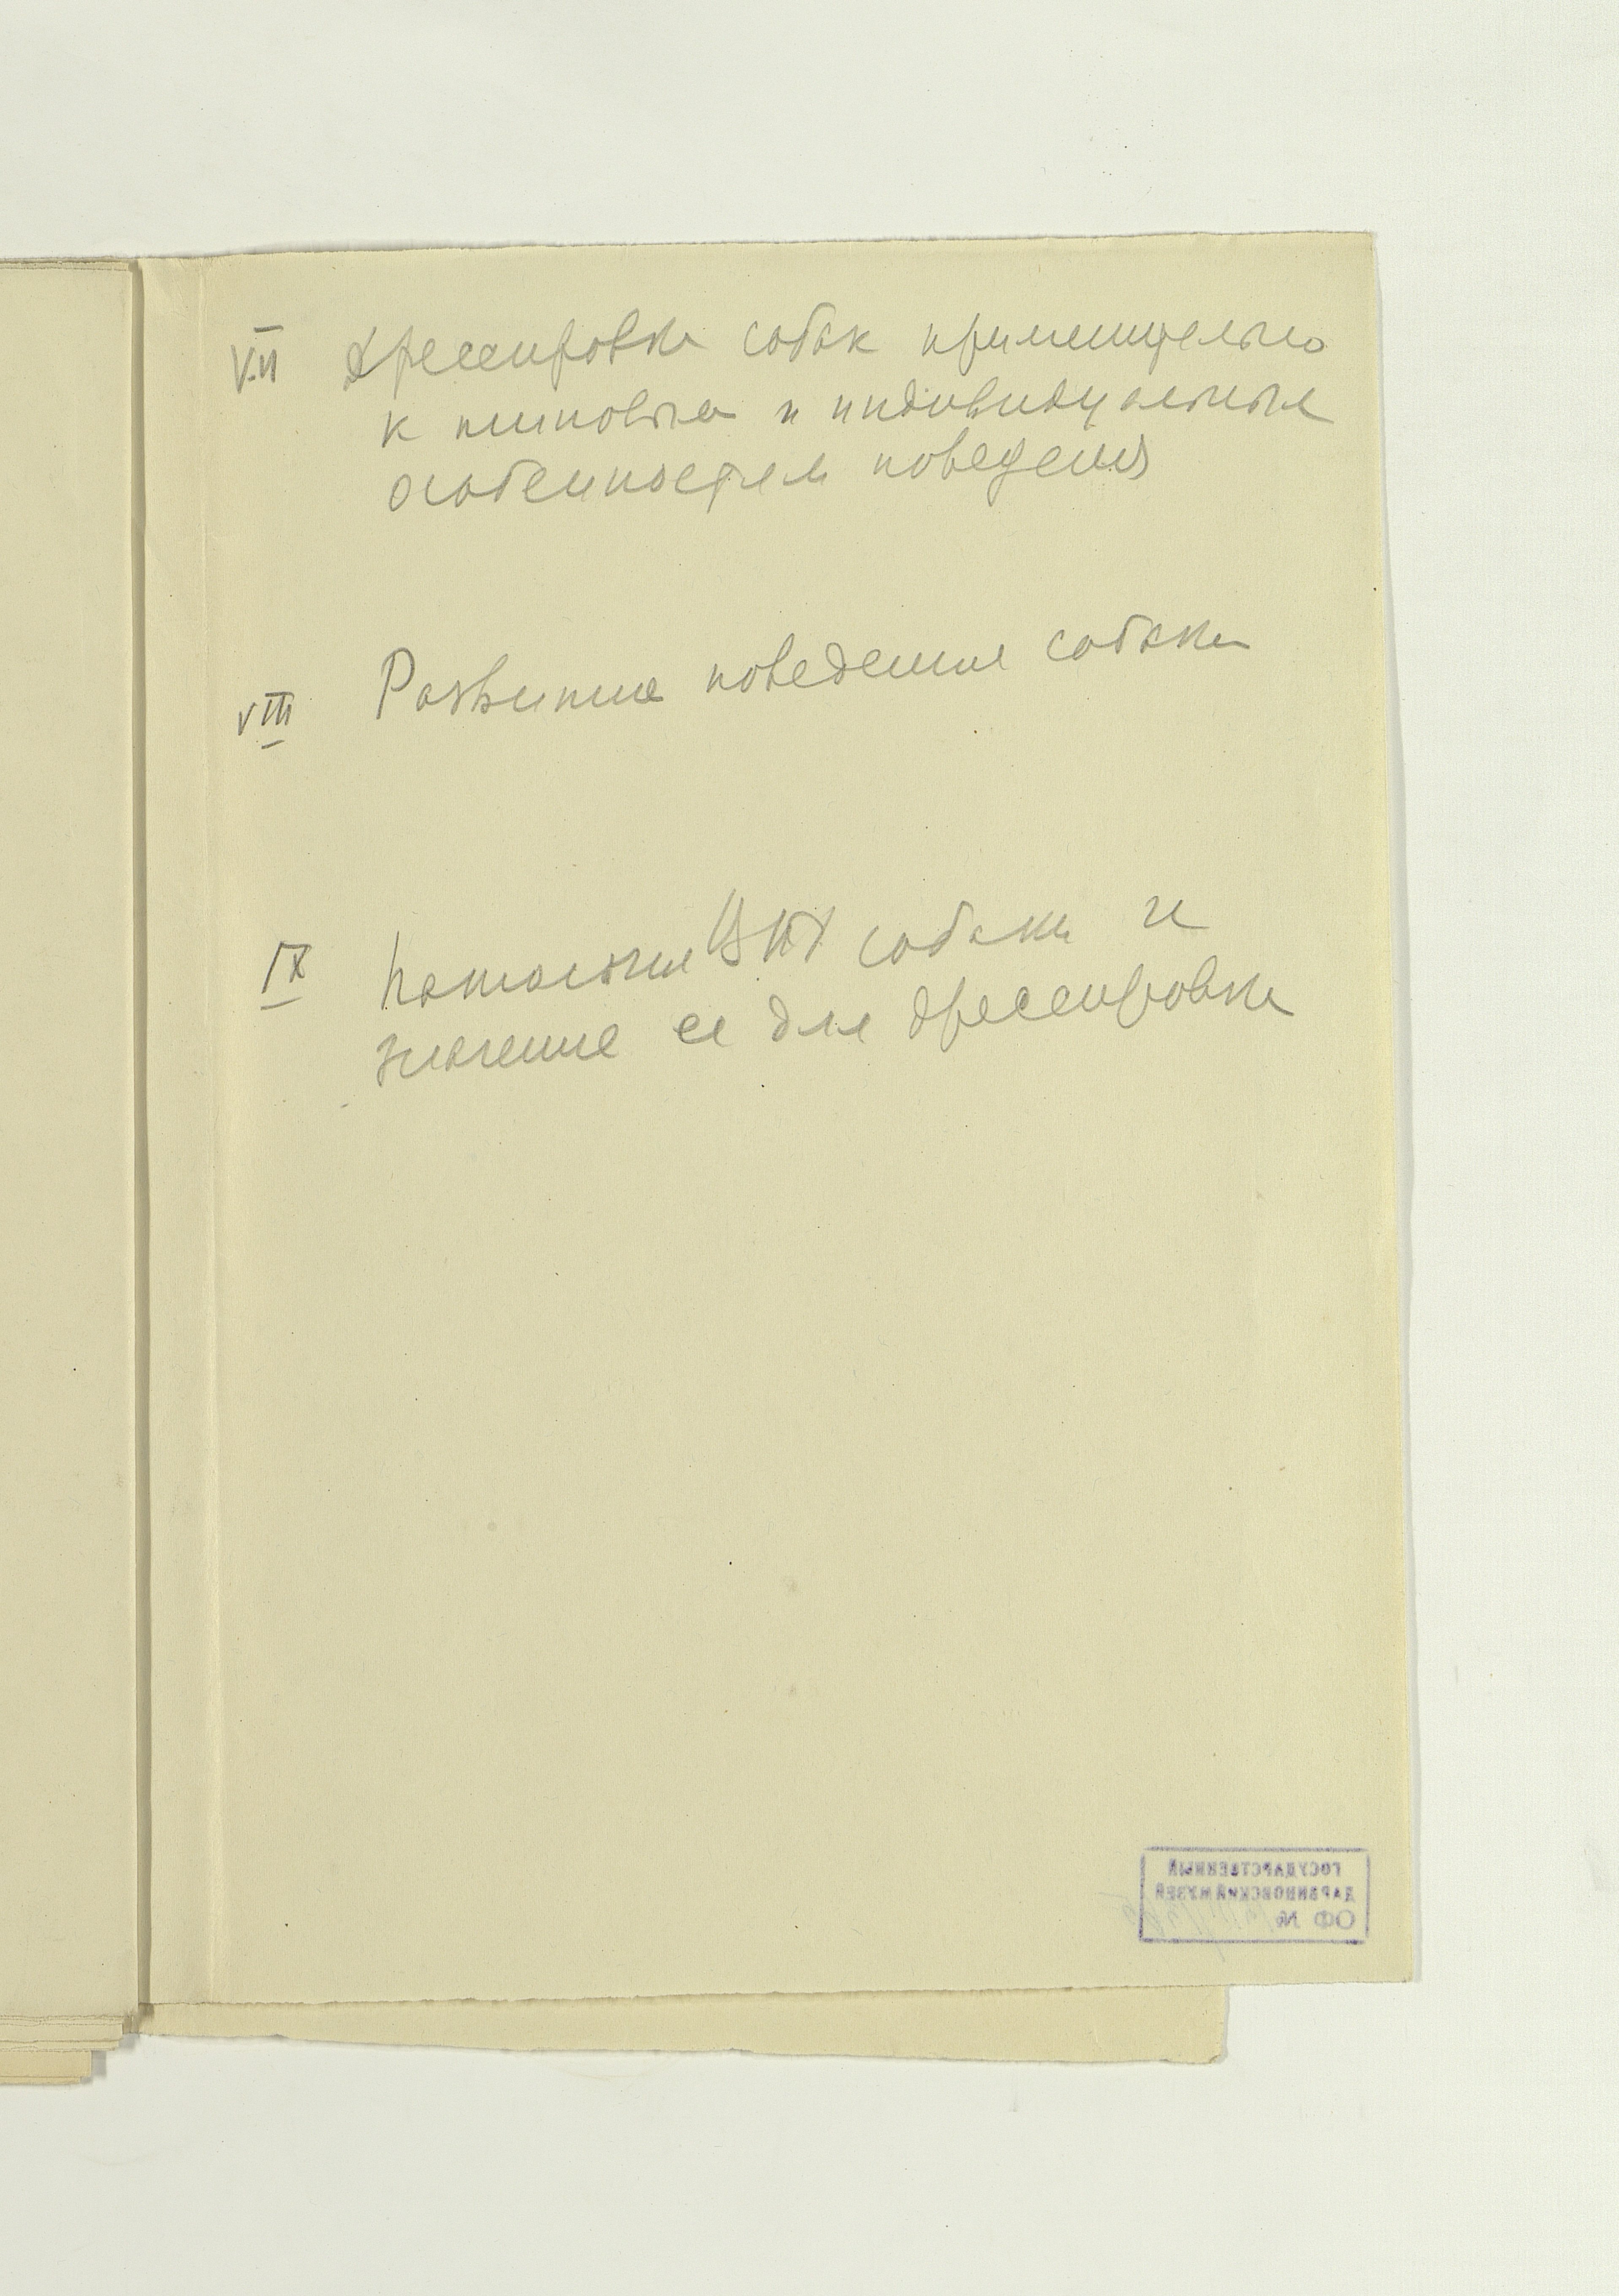 VII Дрессировка собак применительно
к типовым и индивидуальным
особенностям поведения
VIII Развитие поведения собаки
IX Патология ВНД собаки и
значение ее для дрессировки
ГОСУДАРСТВЕННЫЙ
ДАРВИНОВСКИЙ МУЗЕЙ
ОФ №